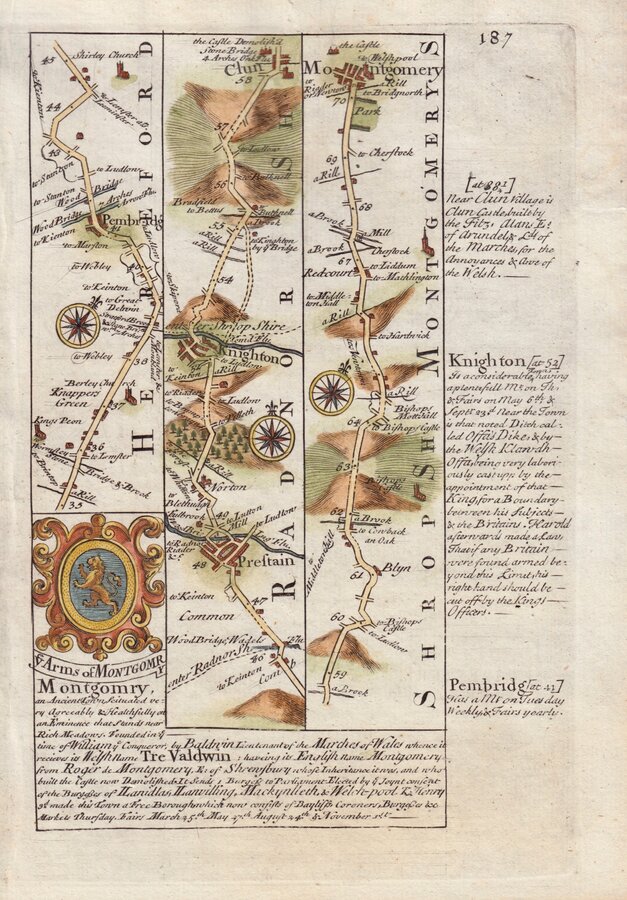 187
45
Shirley Church
to Kinton
44
to Lemster all
Leominster
43
to Sturton
to Ludlow
to Stanton
Wood Bridge
Arches
Arrow Flu.
Wood Bridge
Pembridg
to Kinton
41
to Marston
to Webley
40
to Keinton
to Great
Delvin
39
to Webley
38
Berley Church
Knappers
Green
37
Kings Peon
36
to Lemster
to Boston
Bridge & Brook
a Rill
35
HEREFORD
the Castle Demolish'd
Stone Bridge
4 Arches Onk Flu.
Clun
58
57
to Ludlow
56
to Bucknell
Bradfield
to Betus
55
Bucknell
Brook
a Rill
a Rill
to Knighton
by ye Bridge
54
enter Shrop Shire
Temd Flu.
Knighton
52
to Keinton
to Ludlow
a Rill
to Ludlow
a Rill
Norton
to Blethvagh
49
to Lutton
Rill
to Ludlow
Lug Flu.
to Radnor
48
Prestain
to Keinton
47
Common
Wood Bridge Wadels
Flu
enter Radnor Sh
46
to Keinton
Comt
RADNOR SH
the Castle
to Welshpool
Montgomery
a Rill
to Bridgnorth
70
Park
69
to Cherstock
a Rill
68
a Brook
a Mill
a Brook
Cherstock
67
to Liddum
Redcourt
to Machlington
to Middle-
ton Hall
a Rill
to Hardwick
a Rill
Bishops
Motthall
64
to Bishops Castle
63
Bishops
Castle
62
a Brook
to Cowback
an Oak
Middleton Hill
61
Blyn
60
to Bishops
Castle
to Ludlow
59
a Brook
SHROP SH
MONTGOMERY S
[at 58]
Near Clun Village is
Clun Castle built by
the Fitz, Alans E.
of Arundel, & Lds. of
the Marches for the
Annoyances & Awe of
the Welsh.
Knighton [at 52]
Is a considerable Town, having
a plentifull Mt. on Th.
& Fairs on May 6th. &
Septr. 23d. Near the Town
is that noted Ditch cal-
led Offa's Dike, & by
the Welsh Klawdh
Offa, being very labori-
ously cast up, by the
appointment of that
King, for a Boundary
between his Subjects
& the Britains. Harold
afterwards made a Law,
That if any Britain
were found armed be-
yond this Limit, his
right hand should be
cut off by the Kings
Officers.
Pembridg [at 41]
Has a Mt. on Tuesday
Weekly, & Fairs yearly.
ye Arms of MONTGOMRY
Montgomry,
an Ancient Town, Seituated ve-
ry Agreeably & Healthfully on
an Eminence that Stands near
Rich Meadows. Founded in ye
time of William ye Conqueror, by Baldwin Lieutenant of the Marches of Wales whence it
recieves its Welsh Name Tre Valdwin: having its English name Montgomery
from Roger de Montgomery, E. of Shrewsbury whose Inheritance it was, and who
built the Castle now Demolished. It Sends 1 Burgess to Parliament Elected by ye Joynt consent
of the Burgesses of Llanidlas, Llanvilling, Mackynlleth & Welch-pool. K. Henry
3d. made this Town a Free Borough which now consists of Bayliffs Coroners, Burgesses &c
Markets Thursday. Fairs March 25th. May 27th. August 24th. & November 1st.